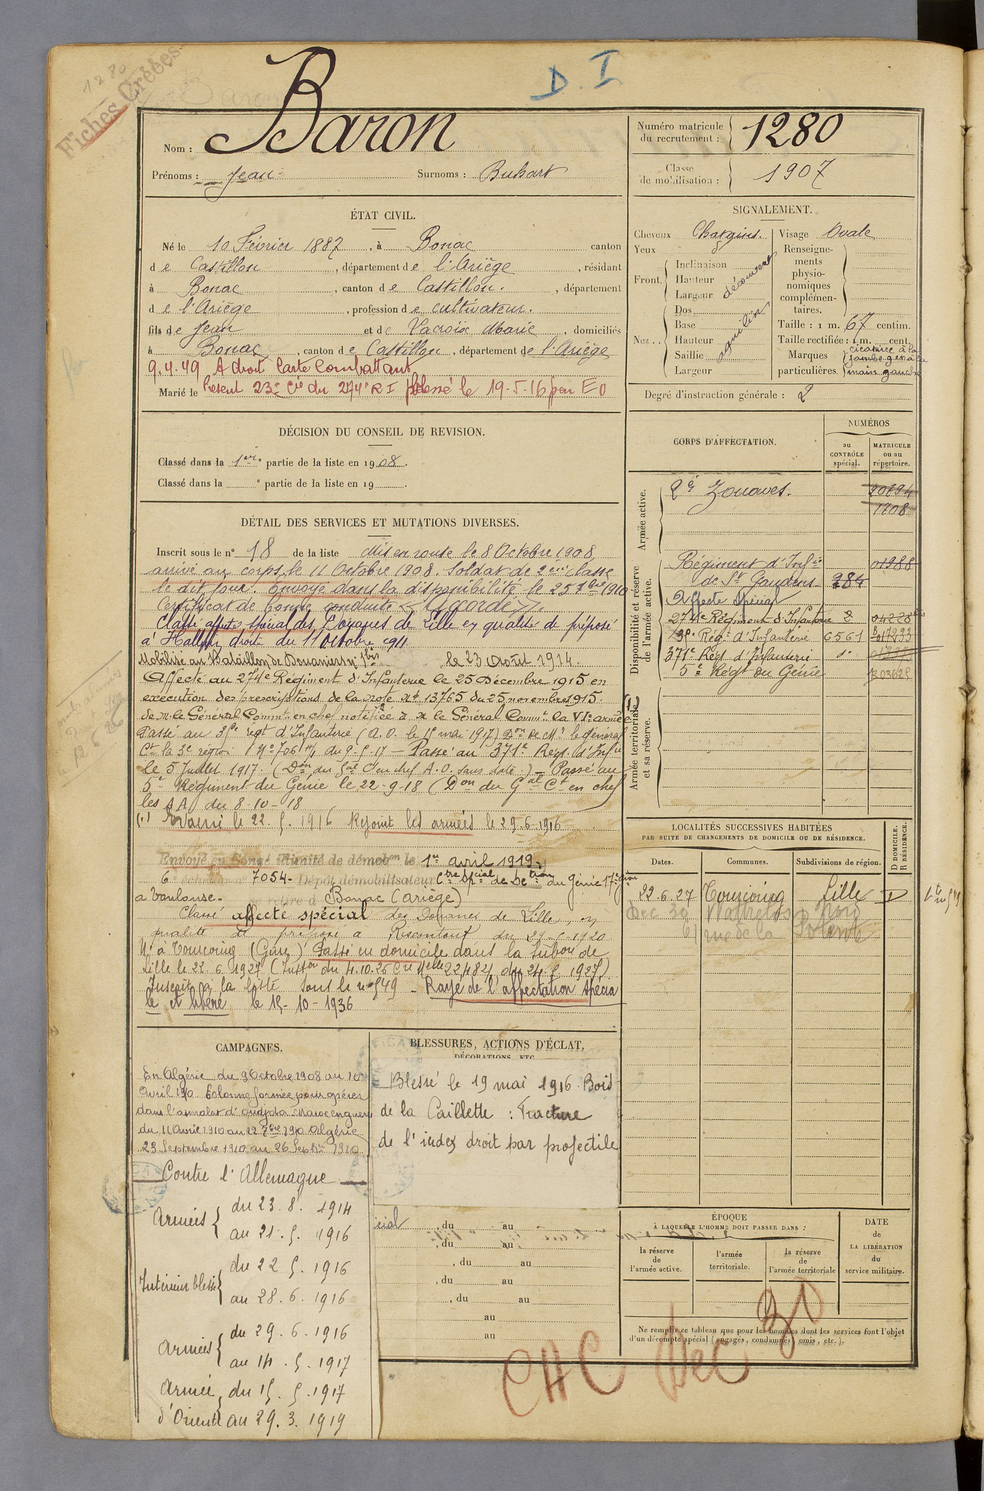 1280
Fiches Créées
D. I
Nom : Baron
Prénoms : Jean Surnoms :
Numéro matricule du recrutement : 1280
Classe de mobilisation : 1907
ÉTAT CIVIL.
Né le 10 Février 1887, à Bonac canton
de Castillon, département de l'Ariège, résidant
à Bonac, canton de Castillon, département
de l'Ariège, profession de cultivateur.
fils de Jean et de Marie, domiciliés
à Bonac, canton de Castillon, département de l'Ariège
9.4.49 A droit Carte Combattant
Marié le Présent 23e Cie du 274e RI blessé le 19-5-16 par EO
SIGNALEMENT.
Cheveux Chatains. Visage Ovale
Yeux
Front. Inclinaison
Hauteur
Largeur
découvert
Nez . . Dos
Base
Hauteur
Saillie
Largeur
aquilin
Renseigne-
ments
physio-
nomiques
complémen-
taires.
Taille : 1 m. 67 centim.
Taille rectifiée : 1 m. cent.
Marques particulières. cicatrice à la
jambe
main gauche
Degré d'instruction générale : 2
DÉCISION DU CONSEIL DE REVISION.
Classé dans la 1ère partie de la liste en 1908.
Classé dans la e partie de la liste en 19
CORPS D'AFFECTATION.
NUMÉROS
au CONTRÔLE spécial.
MATRICULE ou au répertoire.
Armée active.
2e Zouaves.
1908
Disponibilité et réserve de l'armée active.
Régiment d'Infie 01988
de St Gaudens 284
Affecté Spécial
274e Régiment d'Infanterie
Rég. d'Infanterie 6561
371e Régt d'Infanterie
5e Régt du Génie
Armée territoriale et sa réserve.
DÉTAIL DES SERVICES ET MUTATIONS DIVERSES.
Inscrit sous le n° 18 de la liste Mis en route le 8 Octobre 1908
arrivé au corps le 11 Octobre 1908. Soldat de 2ème classe
le dit jour. Envoyé dans la disponibilité le 25 7bre 1910
Certificat de bonne conduite "Accordé".
Classé affecté spécial des Douanes de Lille en qualité de préposé
à Halluin droit du 11 Octobre 1911
Mobilisé au Bataillon de Douaniers, le 23 Août 1914.
Affecté au 274e Régiment d'Infanterie le 25 Décembre 1915 en
exécution des prescriptions de la note n° 13765 du 25 novembre 1915
de M. le Général Commt en chef notifiée à M. le Général Commt la VIe armée
Passé au 39e régt d'Infanterie (A. O. le 15 mai 1917) Don de M. le général
Ct la 3e région du 9-5-17 — Passé au 371e Régt d'Infie
le 5 Juillet 1917. (Don du Gal Ct en chef A.O. sans date) — Passé au
5e Régiment du Génie le 22-9-18 (Don du Gal Ct en chef
les AA) du 8-10-18
(1) Evacué le 22.5.1916 Rejoint les armées le 29-6-1916
Envoyé en Congé illimité de démobon le 1er avril 1919.
6 échelon n° 7054. Dépôt démobilisateur du Génie 17e
à Toulouse. se retire à Bonac (Ariège)
Classé affecté spécial des Douanes de Lille, en
qualité de préposé à
Rt à Tourcoing (Gare) Passé en domicile dans la subon de
Lille le 22.6.1927
Inscrit à la liste sous le n° 549 — Rayé de l'affectation spécia
le et libéré le 15-10-1936
LOCALITÉS SUCCESSIVES HABITÉES
PAR SUITE DE CHANGEMENTS DE DOMICILE OU DE RÉSIDENCE.
Dates. Communes. Subdivisions de région.
D DOMICILE. R RÉSIDENCE.
22.6.27 Tourcoing Lille D
Wattrelos Nord
61 rue de la
CAMPAGNES.
En Algérie du 9 Octobre 1908 au 10
Avril 1910 Colonne formée pour opérer
dans l'amalat d'Oudjda. Maroc en guerre
du 11 Avril 1910 au 22 7bre 1910 Algérie
23 Septembre 1910 au 26 Septbre 1910
Contre l'Allemagne
Armées du 23.8.1914
au 21.5.1916
Intérieur blessé du 22.5.1916
au 28.6.1916
Armées du 29.6.1916
au 14.5.1917
Armée du 15.5.1917
d'Orient au 29.3.1919
BLESSURES, ACTIONS D'ÉCLAT,
DÉCORATIONS, ETC.
Blessé le 19 mai 1916 Bois
de la Caillette : Fracture
de l'index droit par projectile
, du au
, du au
, du au
, du au
, du au
au
au
ÉPOQUE
À LAQUELLE L'HOMME DOIT PASSER DANS :
la réserve de l'armée active.
l'armée territoriale.
la réserve de l'armée territoriale
DATE
de
LA LIBÉRATION
du
service militaire.
Ne remplir ce tableau que pour les hommes dont les services font l'objet
d'un décompte spécial (engagés, condamnés, omis, etc.).
CHC Dec 30